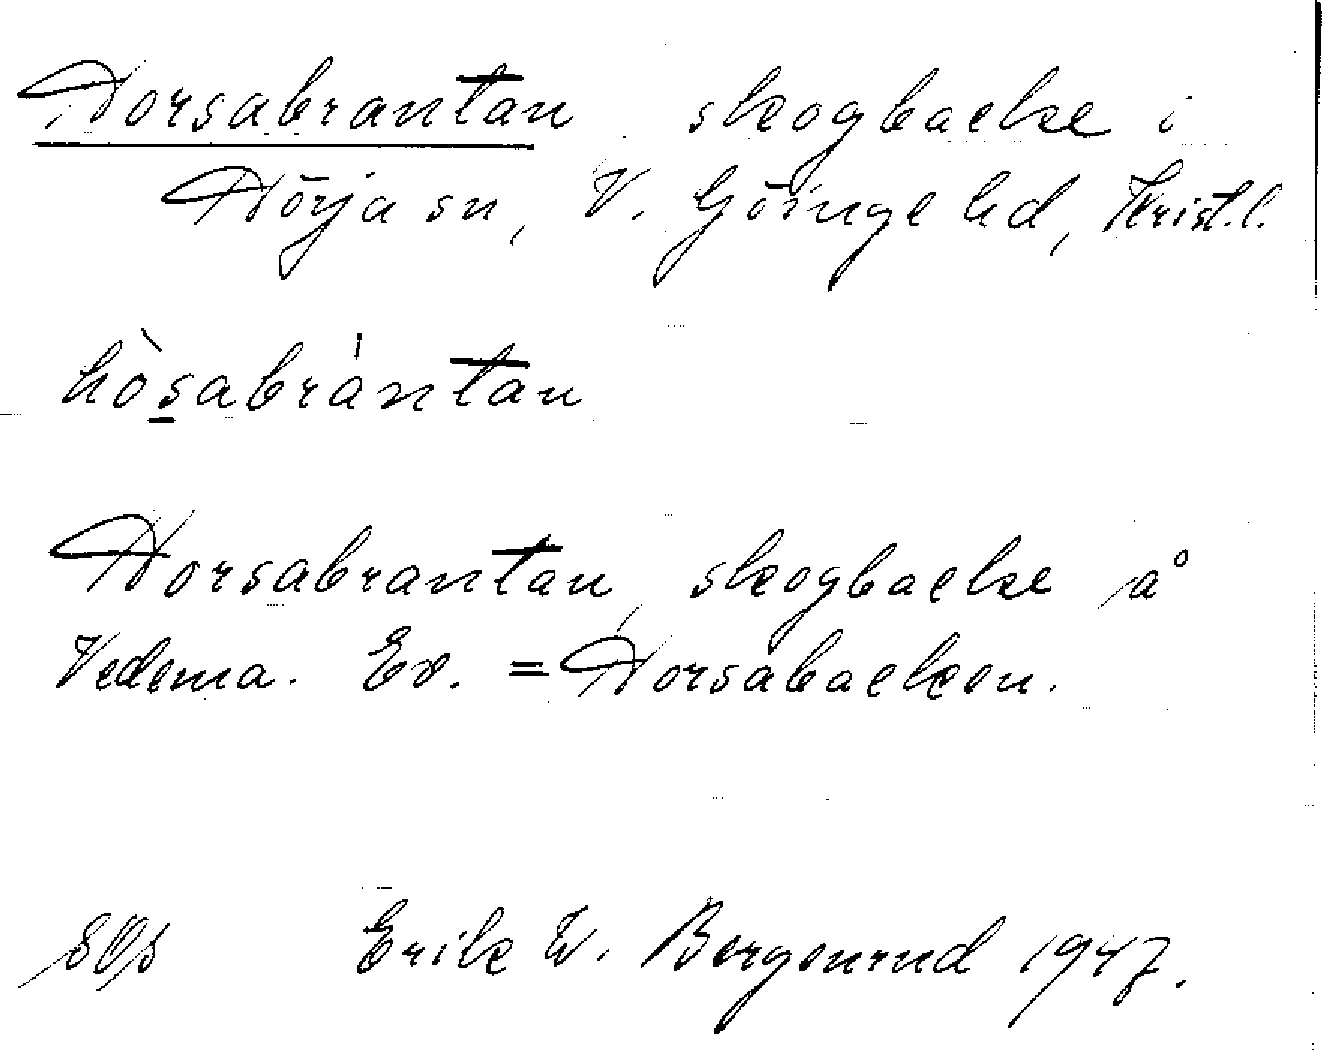 Horsabrantan skogbacke i
Hörja sn, V. Göinge hd, Krist.l.
hòsabrántan
Horsabrantan, skogbacke på
Vedema. Ev. = Horsabacken.
Erik W. Bergenrud 1947.